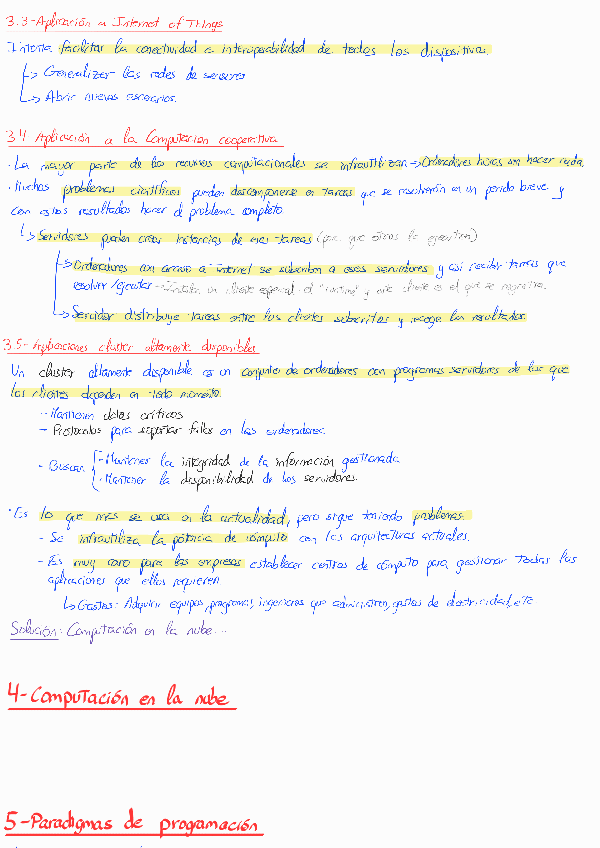 3.3-Aplicación a Internet of Things
Intenta facilitar la conectividad e interoperabilidad de todos los dispositivos.
↳ Generalizar las redes de sensores
↳ Abrir nuevos escenarios.
3.4 Aplicación a la Computación cooperativa
· La mayor parte de los recursos computacionales se infrautilizan → Ordenadores horas sin hacer nada.
· Muchos problemas científicos pueden descomponerse en tareas que se resolverán en un periodo breve y
con estos resultados hacer el problema completo.
↳ Servidores pueden crear instancias de esas tareas (para que otros la ejecuten)
↳ Ordenadores con acceso a internet se subscriben a esos servidores y así recibir tareas que
resolver/ejecutar → Instalan un cliente especial: el "runtime" y este cliente es el que se registra.
↳ Servidor distribuye tareas entre los clientes subscritos y recoge los resultados.
3.5- Aplicaciones cluster altamente disponibles
Un cluster altamente disponible es un conjunto de ordenadores con programas servidores de los que
los clientes dependen en todo momento.
- Mantienen datos críticos
- Protocolos para soportar fallos en los ordenadores.
- Buscan { - Mantener la integridad de la información gestionada
- Mantener la disponibilidad de los servidores.
· Es lo que más se usa en la actualidad, pero sigue teniendo problemas.
- Se infrautiliza la potencia de cómputo con las arquitecturas actuales.
- Es muy caro para las empresas establecer centros de cómputo para gestionar todas las
aplicaciones que ellos requieren
↳ Gastos: Adquirir equipos, programas, ingenieros que administren, gastos de electricidad, etc
Solución: Computación en la nube...
4-Computación en la nube
5-Paradigmas de programación